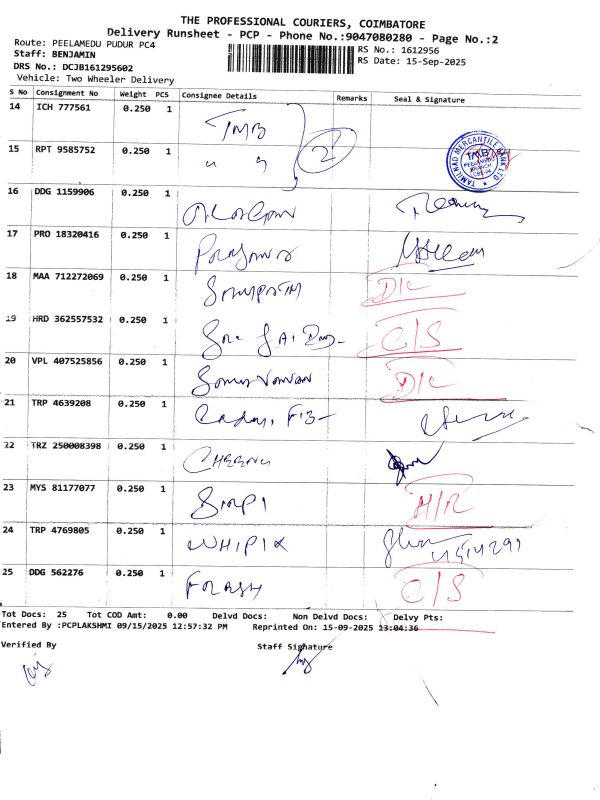 THE PROFESSIONAL COURIERS, COIMBATORE
Delivery Runsheet - PCP - Phone No.:9047080280 - Page No.:2
Route: PEELAMEDU PUDUR PC4
RS No.: 1612956
Staff: BENJAMIN
RS Date: 15-Sep-2025
DRS No.: DCJB161295602
Vehicle: Two Wheeler Delivery
S No Consignment No Weight PCS Consignee Details Remarks Seal & Signature
14 ICH 777561 0.250 1 TMB 2
15 RPT 9585752 0.250 1 " " TAMILNAD MERCANTILE BANK LTD TMB PEELAMEDU BRANCH
16 DDG 1159906 0.250 1
17 PRO 18320416 0.250 1
18 MAA 712272069 0.250 1 D/L
19 HRD 362557532 0.250 1 C/S
20 VPL 407525856 0.250 1 D/L
21 TRP 4639208 0.250 1
22 TRZ 250008398 0.250 1
23 MYS 81177077 0.250 1 H/R
24 TRP 4769805 0.250 1
25 DDG 562276 0.250 1 C/S
Tot Docs: 25 Tot COD Amt: 0.00 Delvd Docs: Non Delvd Docs: Delvy Pts:
Entered By :PCPLAKSHMI 09/15/2025 12:57:32 PM Reprinted On: 15-09-2025 13:04:36
Verified By Staff Signature